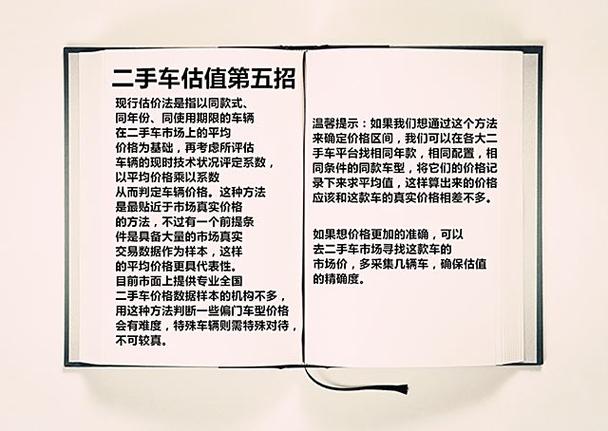 二手车估值第五招
现行估价法是指以同款式、
同年份、同使用期限的车辆
在二手车市场上的平均
价格为基础，再考虑所评估
车辆的现时技术状况评定系数，
以平均价格乘以系数
从而判定车辆价格。这种方法
是最贴近于市场真实价格
的方法，不过有一个前提条
件是具备大量的市场真实
交易数据作为样本，这样
的平均价格更具代表性。
目前市面上提供专业全国
二手车价格数据样本的机构不多，
用这种方法判断一些偏门车型价格
会有难度，特殊车辆则需特殊对待，
不可较真。
温馨提示：如果我们想通过这个方法
来确定价格区间，我们可以在各大二
手车平台找相同年款，相同配置，相
同条件的同款车型，将它们的价格记
录下来求平均值，这样算出来的价格
应该和这款车的真实价格相差不多。
如果想价格更加的准确，可以
去二手车市场寻找这款车的
市场价，多采集几辆车，确保估值
的精确度。